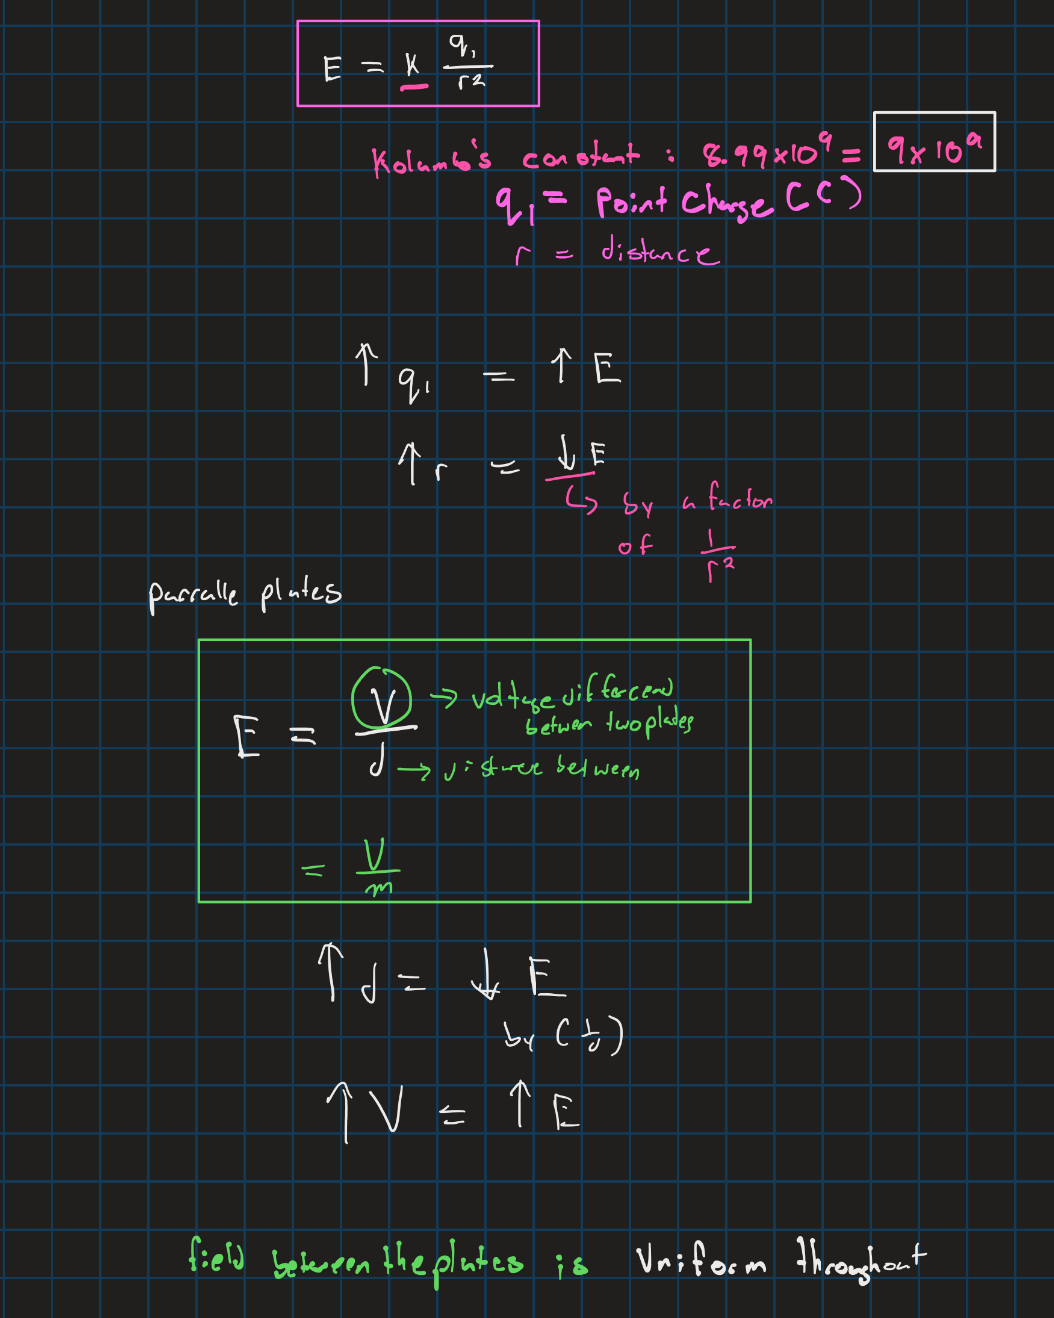 E = k q₁/r²
Kolumb's constant : 8.99x10⁹ = 9x10⁹
q₁ = Point Charge (C)
r = distance
↑ q₁ = ↑ E
↑ r = ↓ E
↳ by a factor
of 1/r²
parralle plates
E = V/d
→ voltage differcend
between two plates
→ distance between
= V/m
↑ d = ↓ E
by (1/d)
↑ V = ↑ E
field between the plates is Uniform throughout